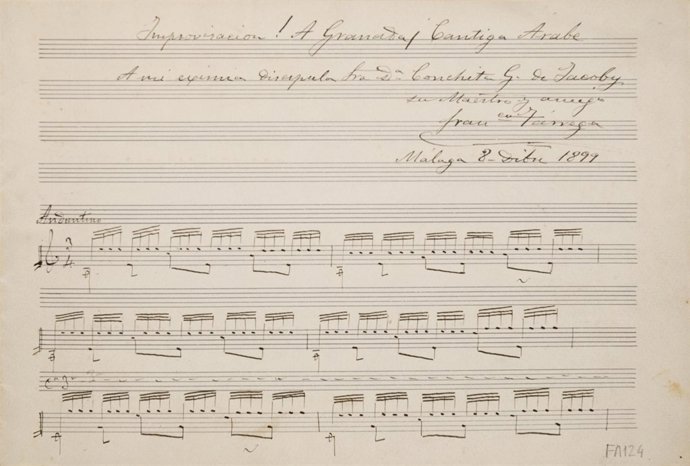 Improvisacion! A Granada/ Cantiga Arabe
A mi eximia discipula Sra Dª Conchita G. de Jacoby
su Maestro y amigo
Franco Tárrega
Málaga 8 Dibre 1899
Andantino
3
4
FA124